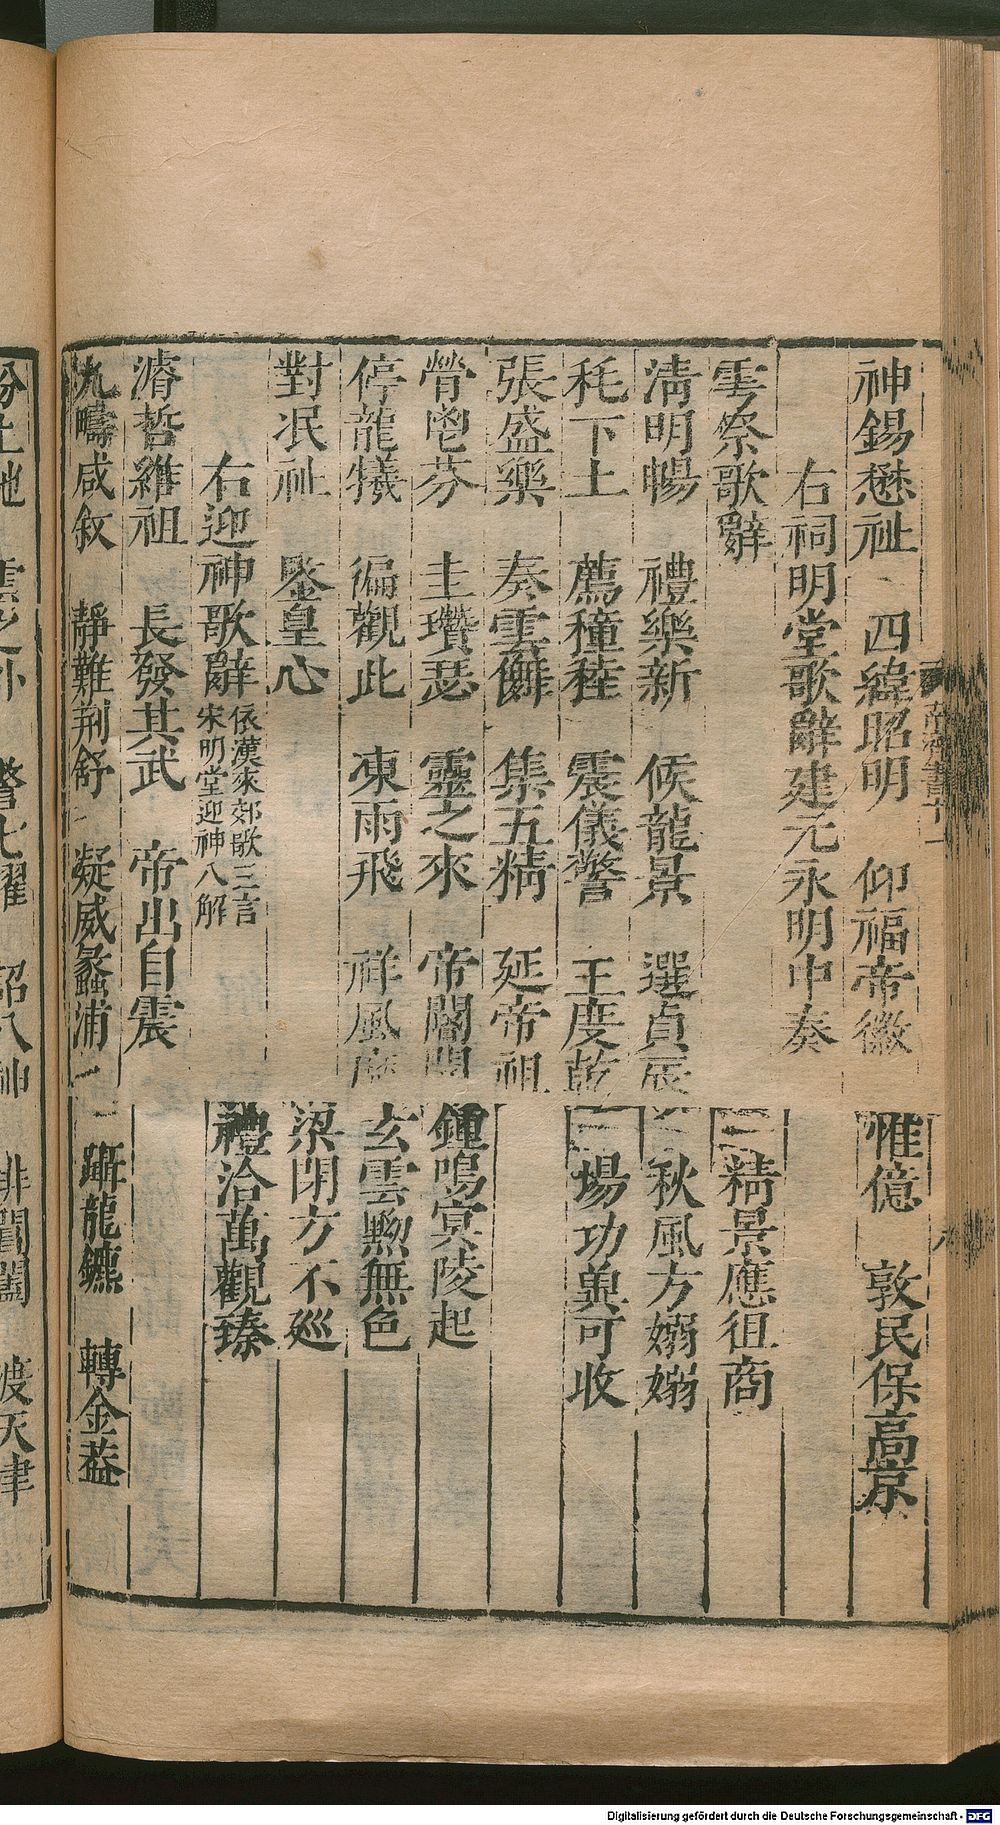 神錫懋祉　四緯昭明　仰福帝徽　惟億　敦民保高京
右祠明堂歌辭建元永明中奏
雩祭歌辭　精景應徂商
清明暢　禮樂新　候龍景　選貞辰　秋風方嫋嫋
秏下土　薦穜稑　震儀警　王度乾　場功兾可收
張盛樂　奏雲儛　集五精　延帝祖
膋鬯芬　圭瓚瑟　靈之來　帝閽開　鍾鳴冥陵起
停龍犧　徧觀此　凍雨飛　祥風靡　玄雲黝無色
對氓祉　鑒皇心　梁閉方不巡
右迎神歌辭　依漢來郊歌三言　宋明堂迎神八解　禮洽萬觀臻
濬哲維祖　長發其武　帝出自震
九疇咸敘　靜難荆舒　凝威蠡浦　躡龍鑣　轉金葢
南齊書十一
八
雲之外　警七耀　詔八神　排閶闔　渡天津
Digitalisierung gefördert durch die Deutsche Forschungsgemeinschaft - DFG